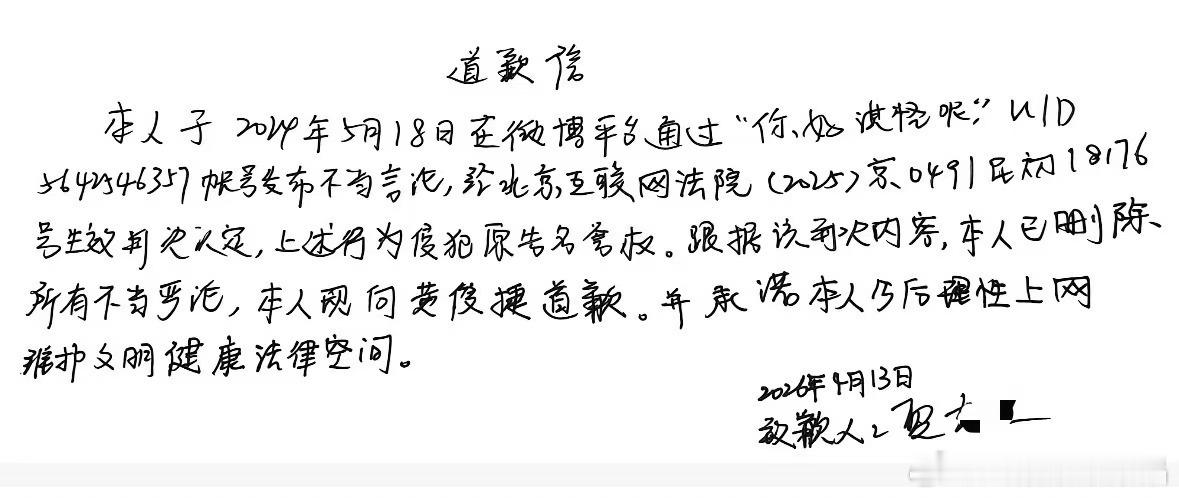 道歉信
本人于2024年5月18日在微博平台通过“你、好滇怪呢”UID
5642546357帐号发布不当言论,经北京互联网法院(2025)京0491民初18176
号生效判决认定,上述行为侵犯原告名誉权。跟据该判决内容,本人已删除、
所有不当言论,本人现向黄俊捷道歉。并承诺本人今后理性上网
维护文明健康法律空间。
2026年4月13日
致歉人: